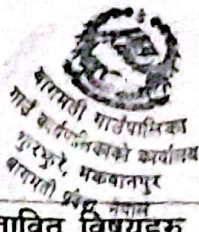 बागमती गाउँपालिका
गाउँ कार्यपालिकाको कार्यालय
फुरफुरे, मकवानपुर
बागमती प्रदेश, नेपाल
तावित विषयहरु